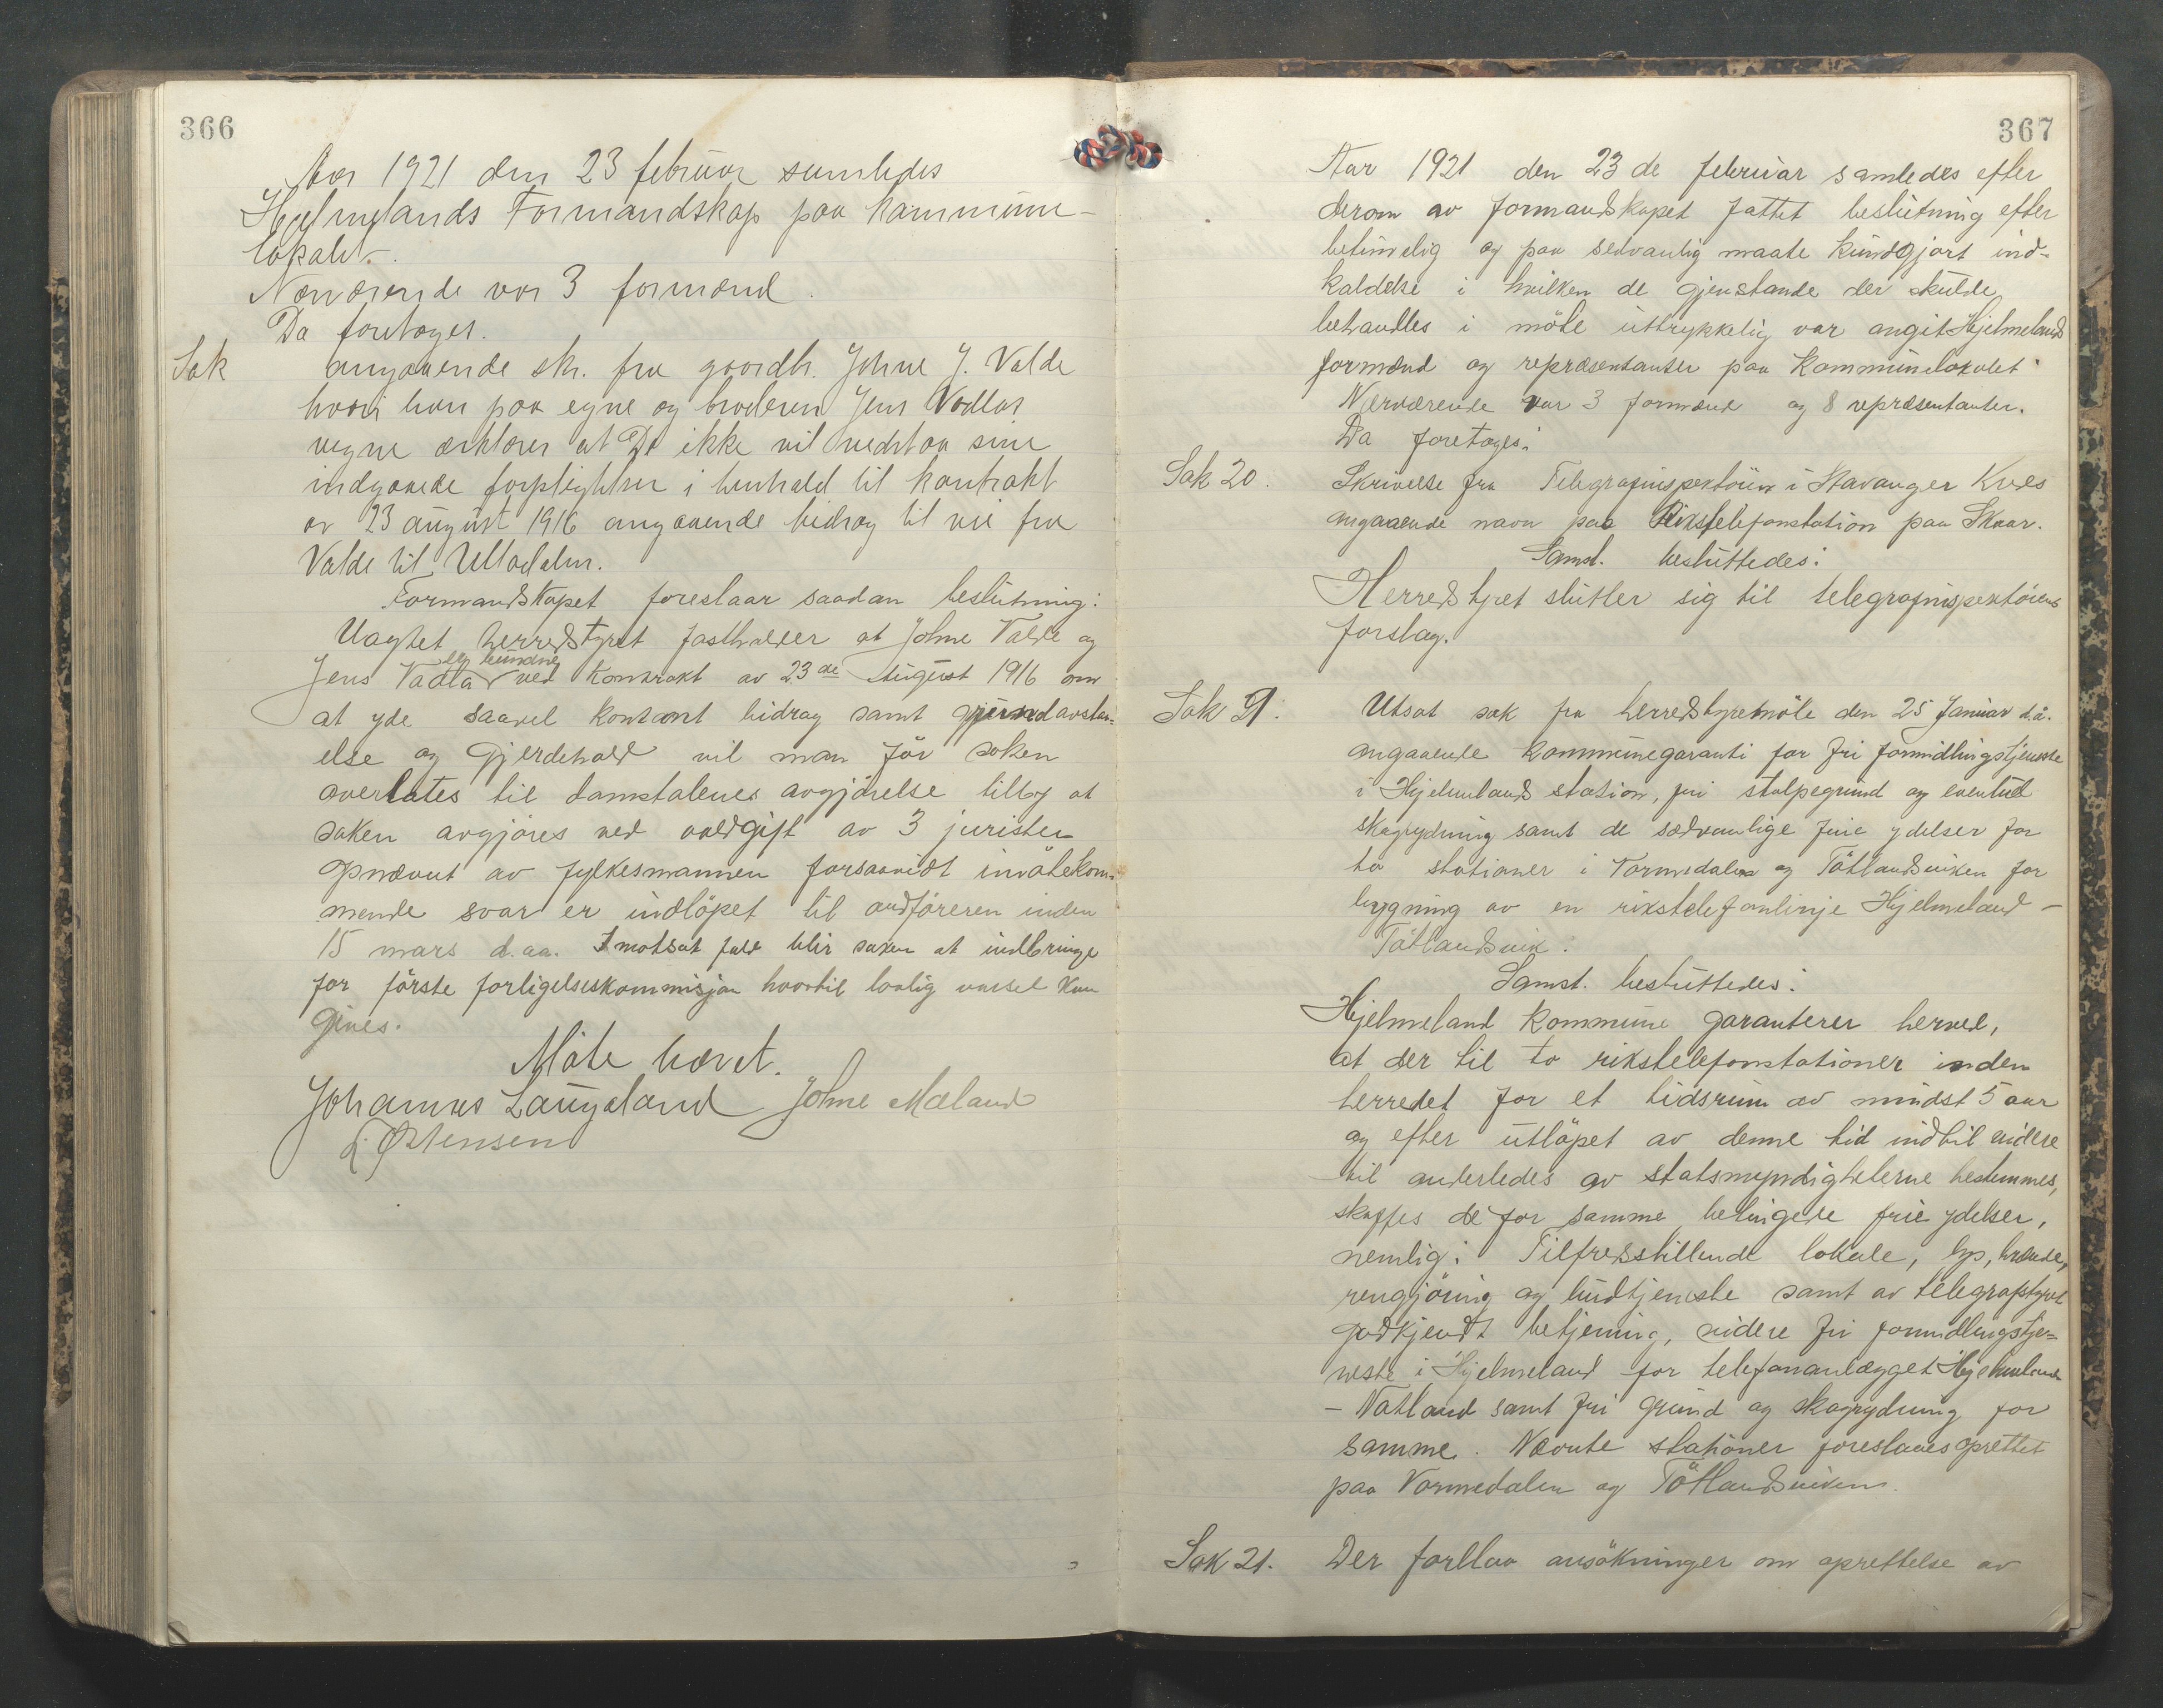 366
Aar 1921 den 23 februar samledes
Hjelmelands Formandskap paa kommune-
lokalet.
Nærværende var 3 formænd.
Da foretoges.
Sak angaaende skr. fra gaardbr. Johne J. Valde
hvori han paa egne og broderen Jens Vadlas
vegne erklærer at De ikke vil vedstaa sine
indgaaede forpligtelser i henhold til kontrakt
av 23 august 1916 angaaende bidrag til vei fra
Valde til Ulladalen.
Formandskapet foreslaar saadan beslutning:
Uagtet herredstyret fastholder at Johne Valde og
er bundne
Jens Vadla ved kontrakt av 23de August 1916 om
at yde saavel kontant bidrag samt grundavsta-
else og gjerdehold vil man før saken
overlates til domstolenes avgjørelse tilby at
saken avgjøres ved voldgift av 3 jurister
opnævnt av fylkesmannen forsaavidt imøtekom-
mende svar er indløpet til ordføreren inden
15 mars d.aa. I motsat fald blir saken at indbringe
for første forligelseskommisjon hvortil lovlig varsel kan
gives.
Møte hævet.
Johannes Laugaland Johne Mæland
L. Østensen
367
Aar 1921 den 23de februar samledes efter
derom av formandskapet fattet beslutning efter
betimelig og paa sedvanlig maate kundgjort ind-
kaldelse i hvilken de gjenstande der skulde
behandles i møte uttrykkelig var angit Hjelmelands
formænd og repræsentanter paa kommunelokalet.
Nærværende var 3 formænd og 8 repræsentanter.
Da foretoges:
Sak 20. Skrivelse fra Telegrafinspektøren i Stavanger Kreds
angaaende navn paa Rikstelefonstation paa Skaar.
Samst. besluttedes:
Herredstyret slutter sig til telegrafinspektørens
forslag.
Sak 9. Utsat sak fra herredstyremøte den 25 Januar d.å.
angaaende kommunegaranti for fri formidlingstjeneste
i Hjelmeland station, fri stolpegrund og eventuel
skogrydning samt de sædvanlige frie ydelser for
to stationer i Vormedalen og Tøtlandsviken for
bygning av en rikstelefonlinje Hjelmeland -
Tøtlandsvik:
Samst. besluttedes:
Hjelmeland kommune garanterer herved,
at der til to rikstelefonstationer inden
herredet for et tidsrum av mindst 5 aar
og efter utløpet av denne tid indtil videre
til anderledes av statsmyndigheterne bestemmes,
skaffes de for samme betingede frie ydelser,
nemlig: Tilfredsstillende lokale, lys, brænde,
rengjøring og budtjeneste samt av telegrafstyret
godkjendt betjening, videre fri formidlingstje-
neste i Hjelmeland for telefonanlægget Hjelmeland
- Natland samt fri grund og skogrydning for
samme. Nævnte stationer foreslaaes oprettet
paa Vormedalen og Tøtlandsviken.
Sak 21. Der forelaa ansøkninger om oprettelse av